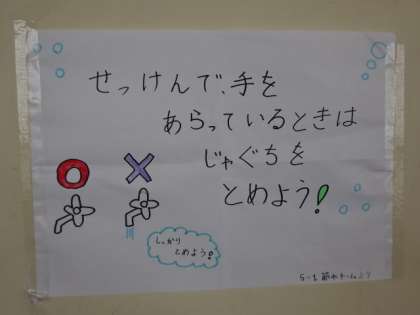 せっけんで、手を
あらっているときは
じゃぐちを
とめよう!
しっかり
とめよう!
5-1 節水チームより